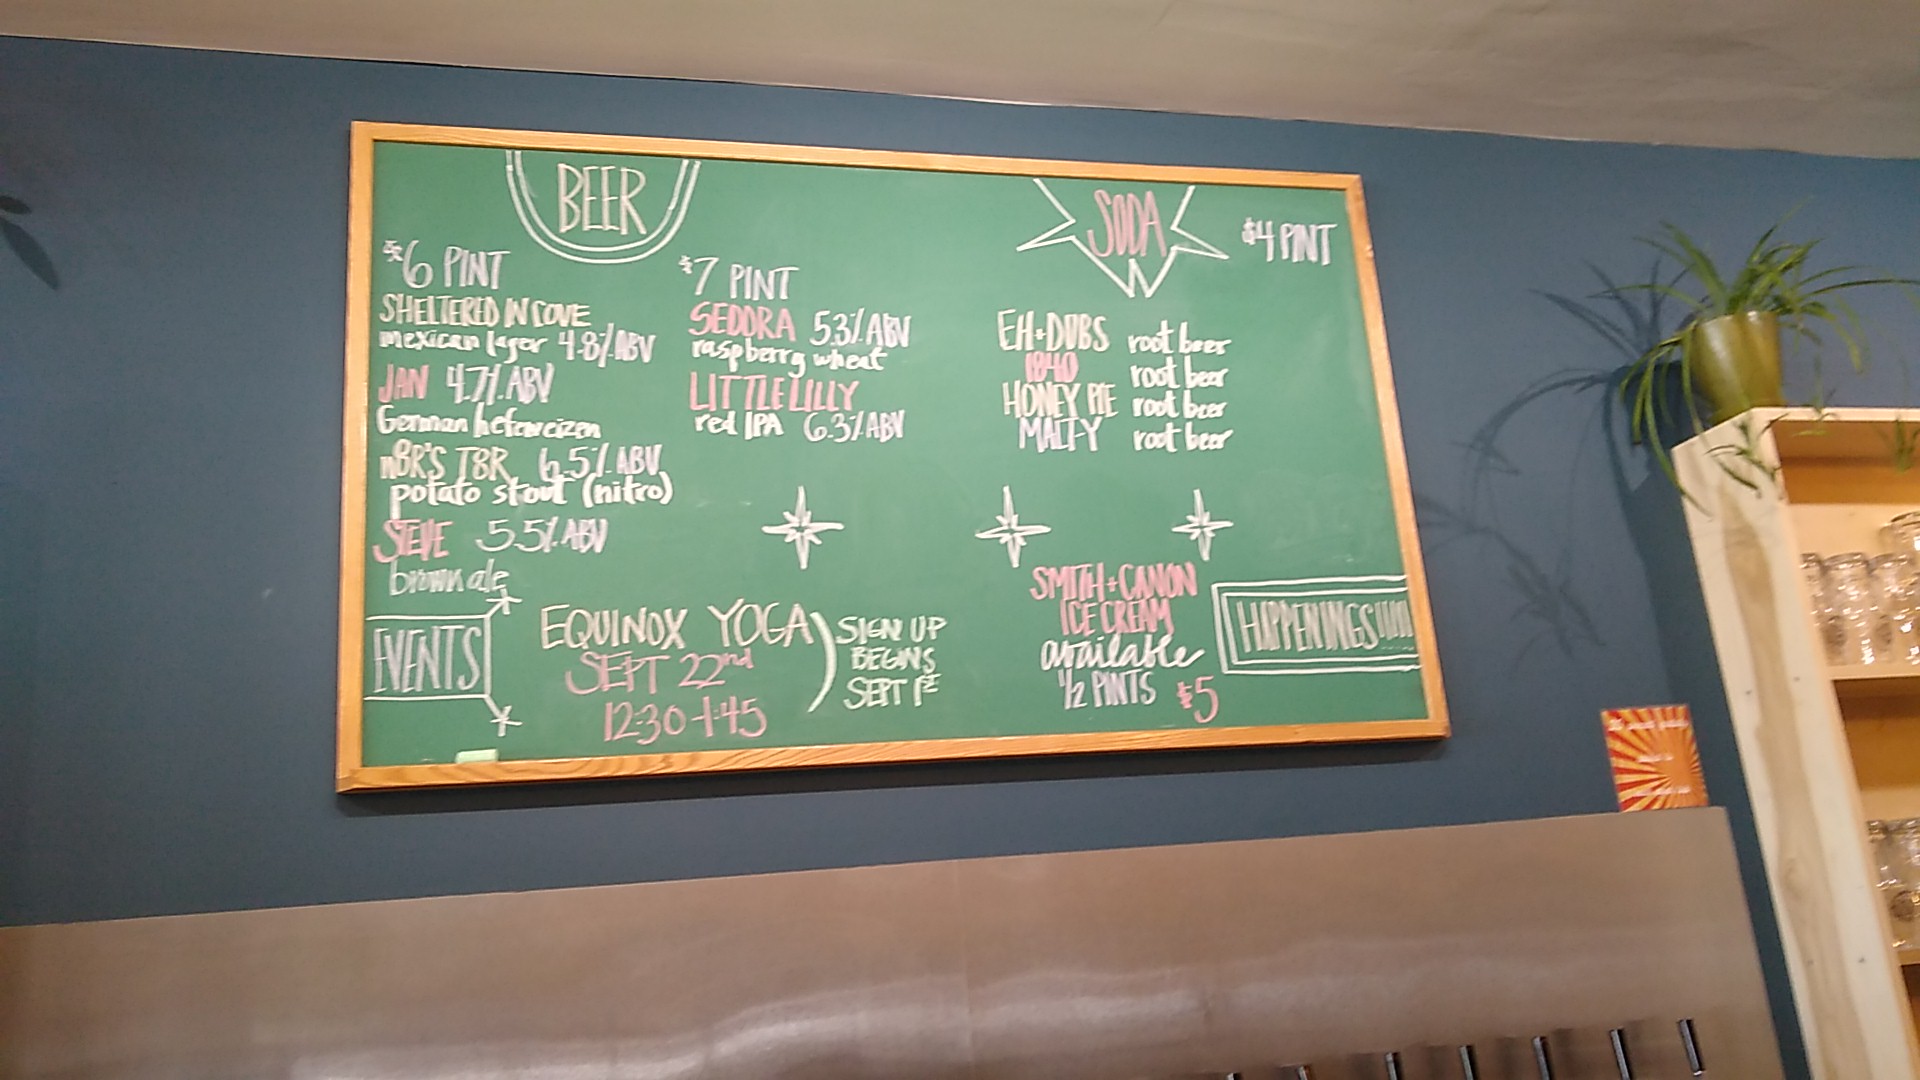 BEER
$6 PINT
SHELTERED IN COVE
mexican lager 4.8% ABV
JAN 4.7% ABV
German hefeweizen
n8R'S T8R 6.5% ABV
potato stout (nitro)
STEVE 5.5% ABV
brown ale
$7 PINT
SEDORA 5.3% ABV
raspberry wheat
LITTLE LILLY
red IPA 6.3% ABV
SODA
$4 PINT
EH+DUBS root beer
1840 root beer
HONEY PIE root beer
MALTY root beer
EVENTS
EQUINOX YOGA
SEPT 22nd
12:30-1:45
SIGN UP
BEGINS
SEPT 1st
SMITH+CANON
ICE CREAM
available
1/2 PINTS $5
HAPPENINGS!!!!!